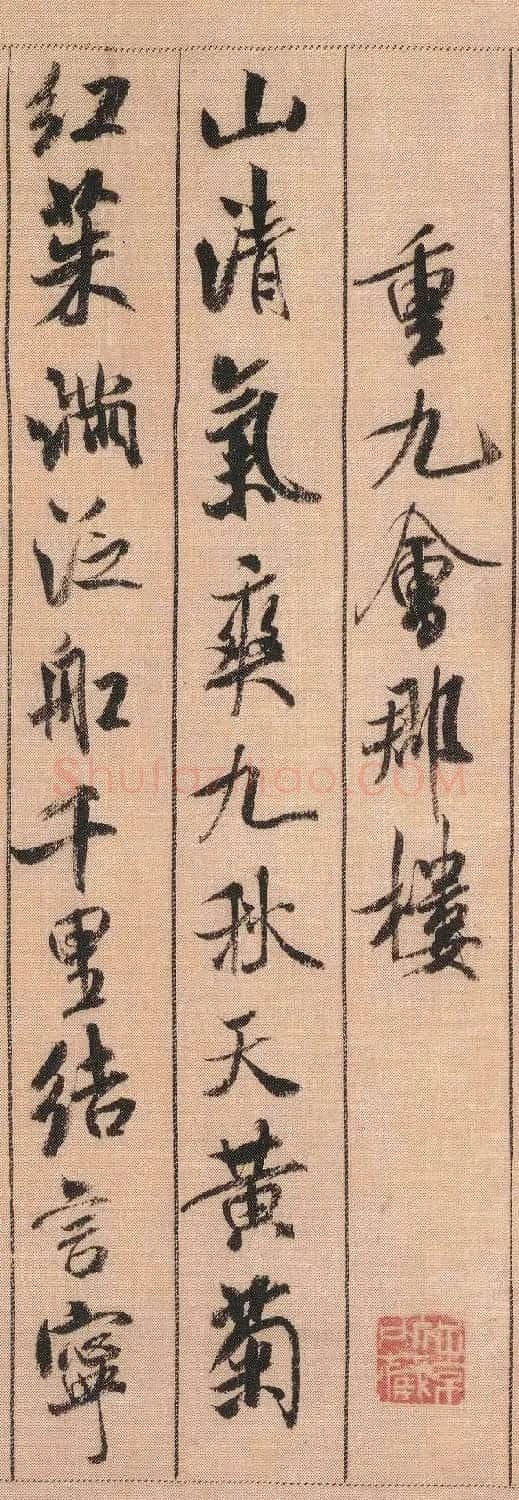 重九會郡樓
山清氣爽九秋天黃菊
紅茱滿泛船千里結言寧